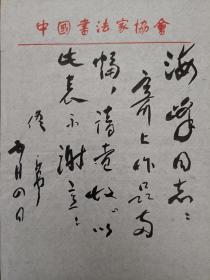 中國書法家協會
海峰同志：
寄上作品两
幅，请查收。以
此表示谢意！
五月四日